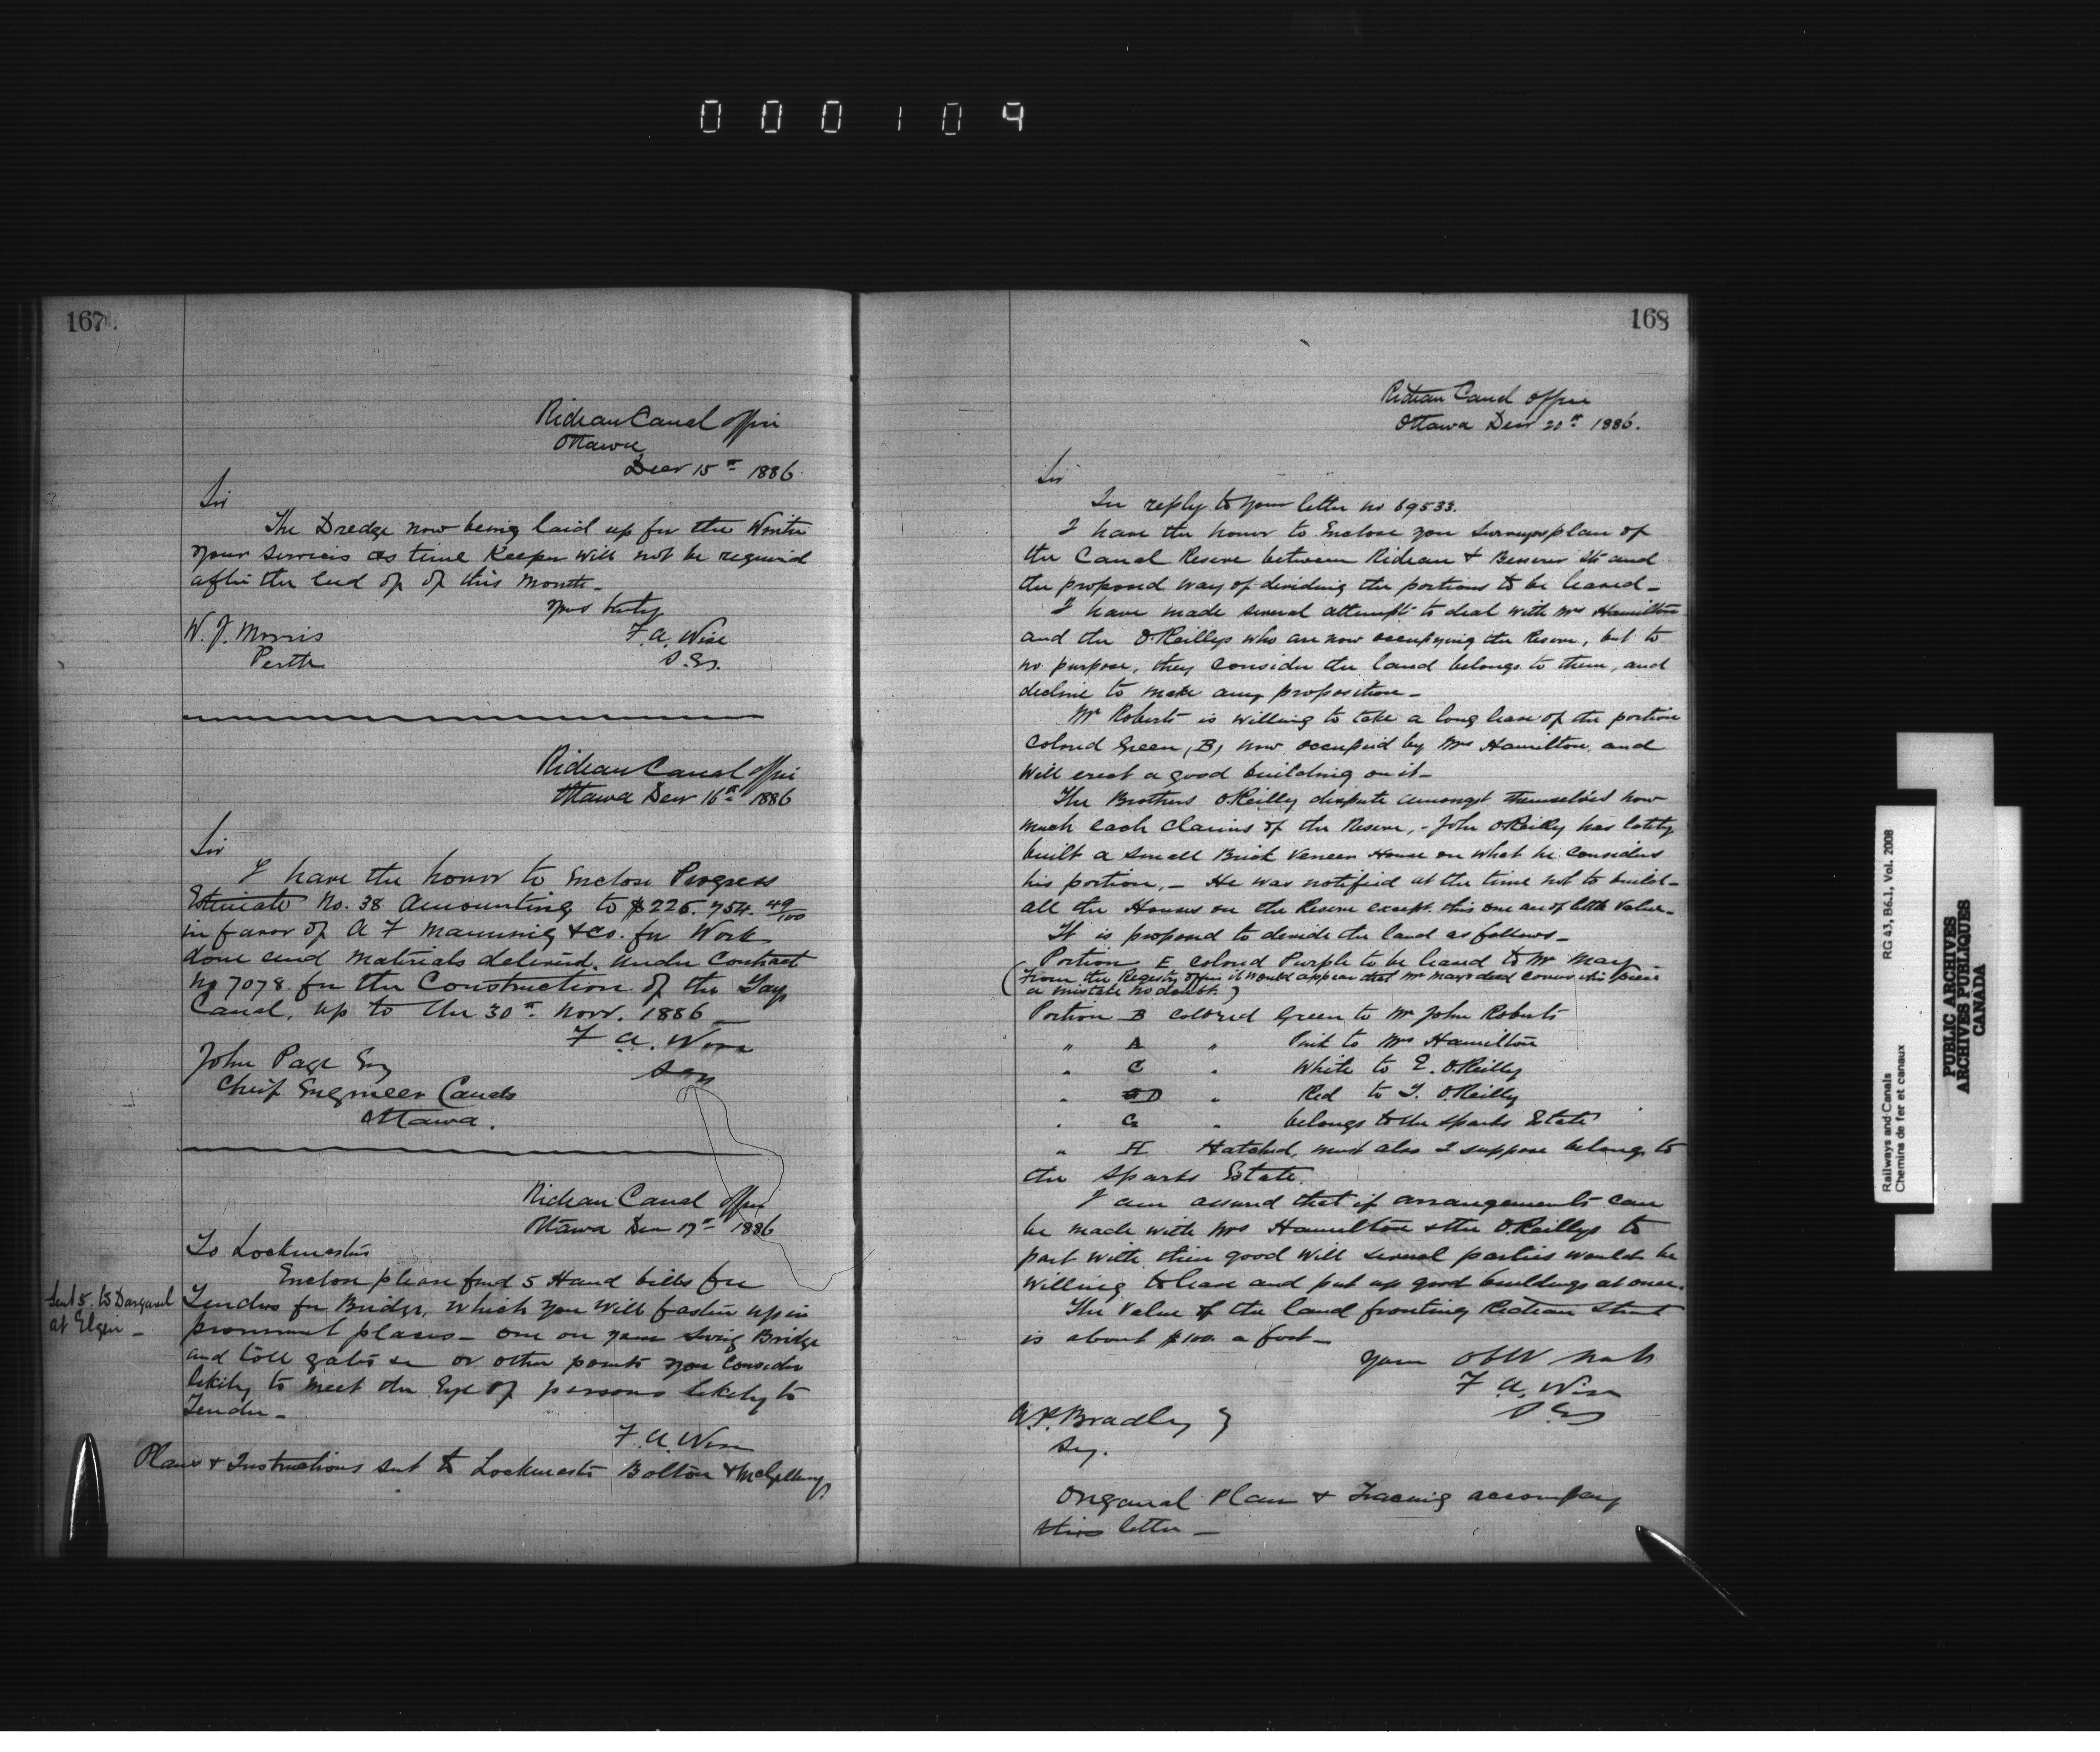 000109
167
Rideau Canal Office
Ottawa
Decr 15th 1886.
Sir
The Dredge now being laid up for the Winter
your services as time Keeper will not be required
after the End of of this Month_
yours truly
W. J. Morris
F. A. Wise
Perth
S. Eg.
Rideau Canal Office
Ottawa Decr 16th 1886
Sir
I have the honor to Enclose Progress
Estimate No. 38 Amounting to $226.754. 49/100
in favor of A F Manning & Co. for Work
done and Materials delivered. Under Contract
No 7078. for the Construction of the Tay
Canal, up to the 30th Novr. 1886_
F. A. Wise
John Page Esq
S Eg
Chief Engineer Canals
Ottawa.
Rideau Canal Office
Ottawa Decr 17th 1886
To Lockmasters
Enclose please find 5 Hand bills for
Sent 5. to Dargavel
at Elgin_
Tenders for Bridge, which you will fasten up in
prominent places_ one on your Swing Bridge
and toll gates &c or other points you consider
likely to meet the Eye of persons likely to
Tender_
F. A. Wise
Plans & Instructions sent to Lockmasters Bolton &
168
Rideau Canal Office
Ottawa Decr 20th 1886.
Sir
In reply to your letter no 69533.
I have the honor to Enclose you Surveyors plan of
the Canal Reserve between Rideau & Besserer Sts and
the proposed way of dividing the portions to be leased_
I have made several attempts to deal with Mrs Hamilton
and the O'Reillys who are now occupying the Reserve, but to
no purpose, they consider the land belongs to them, and
decline to make any proposition_
Mr Roberts is willing to take a long lease of the portion
Colored Green, B, now occupied by Mrs Hamilton, and
will erect a good building on it_
The Brothers O'Reilly dispute amongst themselves how
much each claims of the Reserve,- John O'Reilly has lately
built a small Brick Veneer House on what he considers
his portion,_ He was notified at the time not to build_
all the Houses on the Reserve except this one are of little value_
It is proposed to divide the land as follows_
Portion E colored Purple to be leased to Mr May_
(From the Registry office it would appear that Mr Mays deed covers this piece
a mistake no doubt.)
Portion B colored Green to Mr John Roberts
" A " Pink to Mrs Hamilton
" C " White to E. O'Reilly
" D " Red to T. O'Reilly
" G " belongs to the Sparks Estate
" H Hatched, must also I suppose belong to
the Sparks Estate.
I am assured that if arrangements can
be made with Mrs Hamilton & the O'Reillys to
part with their good will several parties would be
willing to lease and put up good buildings at once.
The Value of the land fronting Rideau Street
is about $100. a foot_
Your Obt
F. A. Wise
S Eg
A. P. Bradley }
Secy.
Original Plan & Tracing accompany
this letter_
Railways and Canals
Chemins de fer et canaux
RG 43, B6.1, Vol. 2008
PUBLIC ARCHIVES
ARCHIVES PUBLIQUES
CANADA